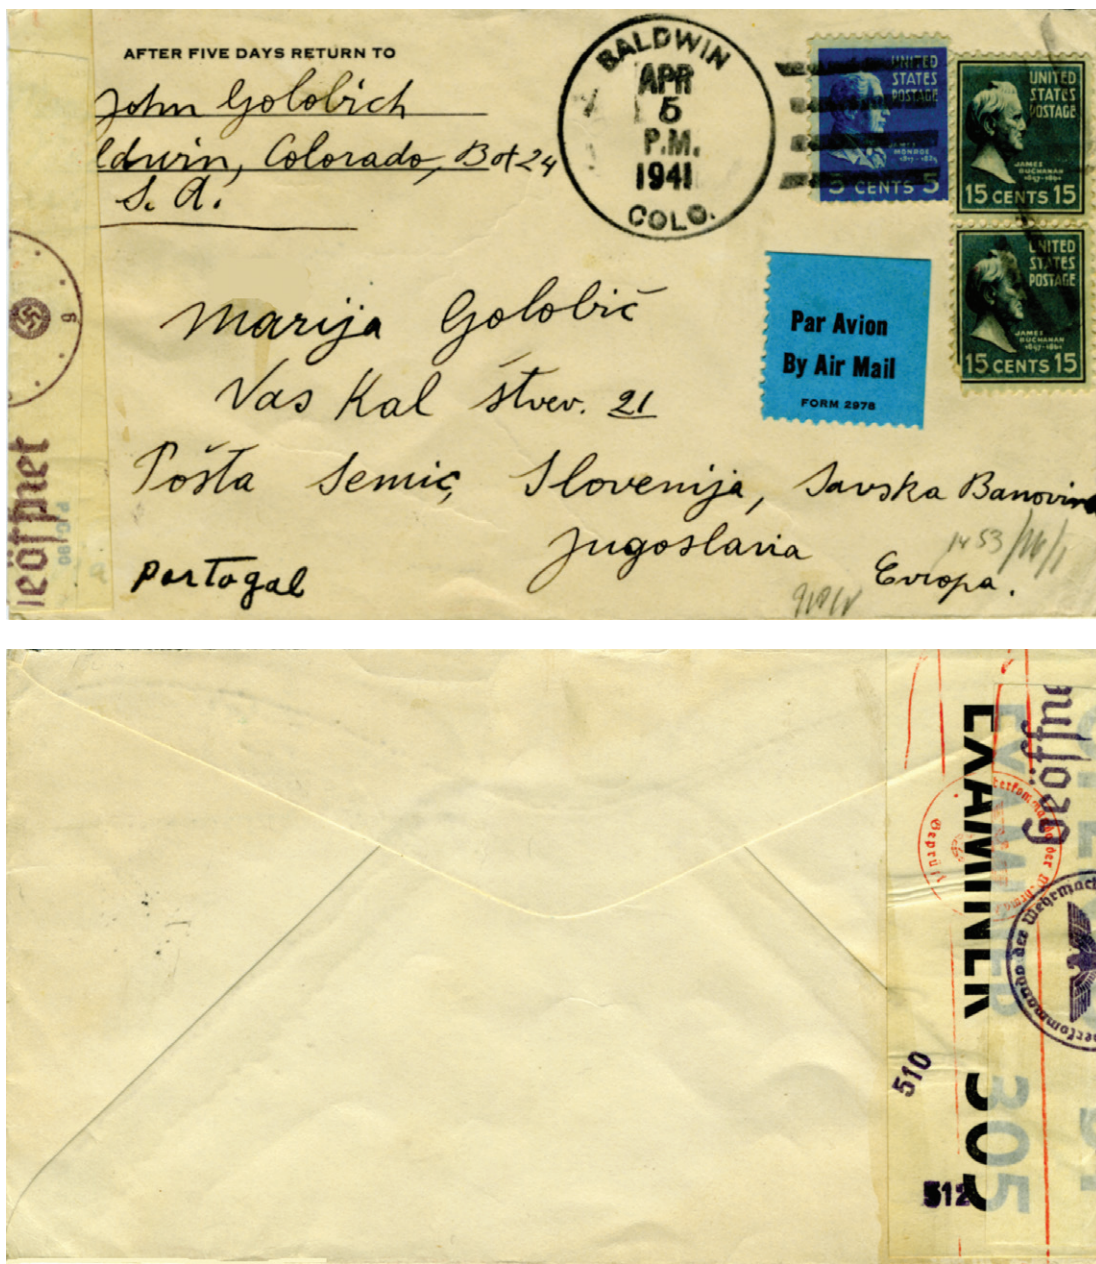 AFTER FIVE DAYS RETURN TO
John Golobich
ldwin, Colorado, Box 24
S. A.
BALDWIN
APR
5
P.M.
1941
COLO.
UNITED
STATES
POSTAGE
JAMES
MONROE
1817-1825
5 CENTS 5
UNITED
STATES
POSTAGE
JAMES
BUCHANAN
1857-1861
15 CENTS 15
UNITED
STATES
POSTAGE
JAMES
BUCHANAN
1857-1861
15 CENTS 15
Par Avion
By Air Mail
FORM 2978
Marija Golobič
Vas Kal štev. 21
Pošta Semič, Slovenija, Savska Banovina
Jugoslavia
Evropa.
Portogal
1453
g
Geöffnet
P.C. 90
EXAMINER 305
EXAMINED
305
Geöffne
Geprüft
der Wehrmach
510
512